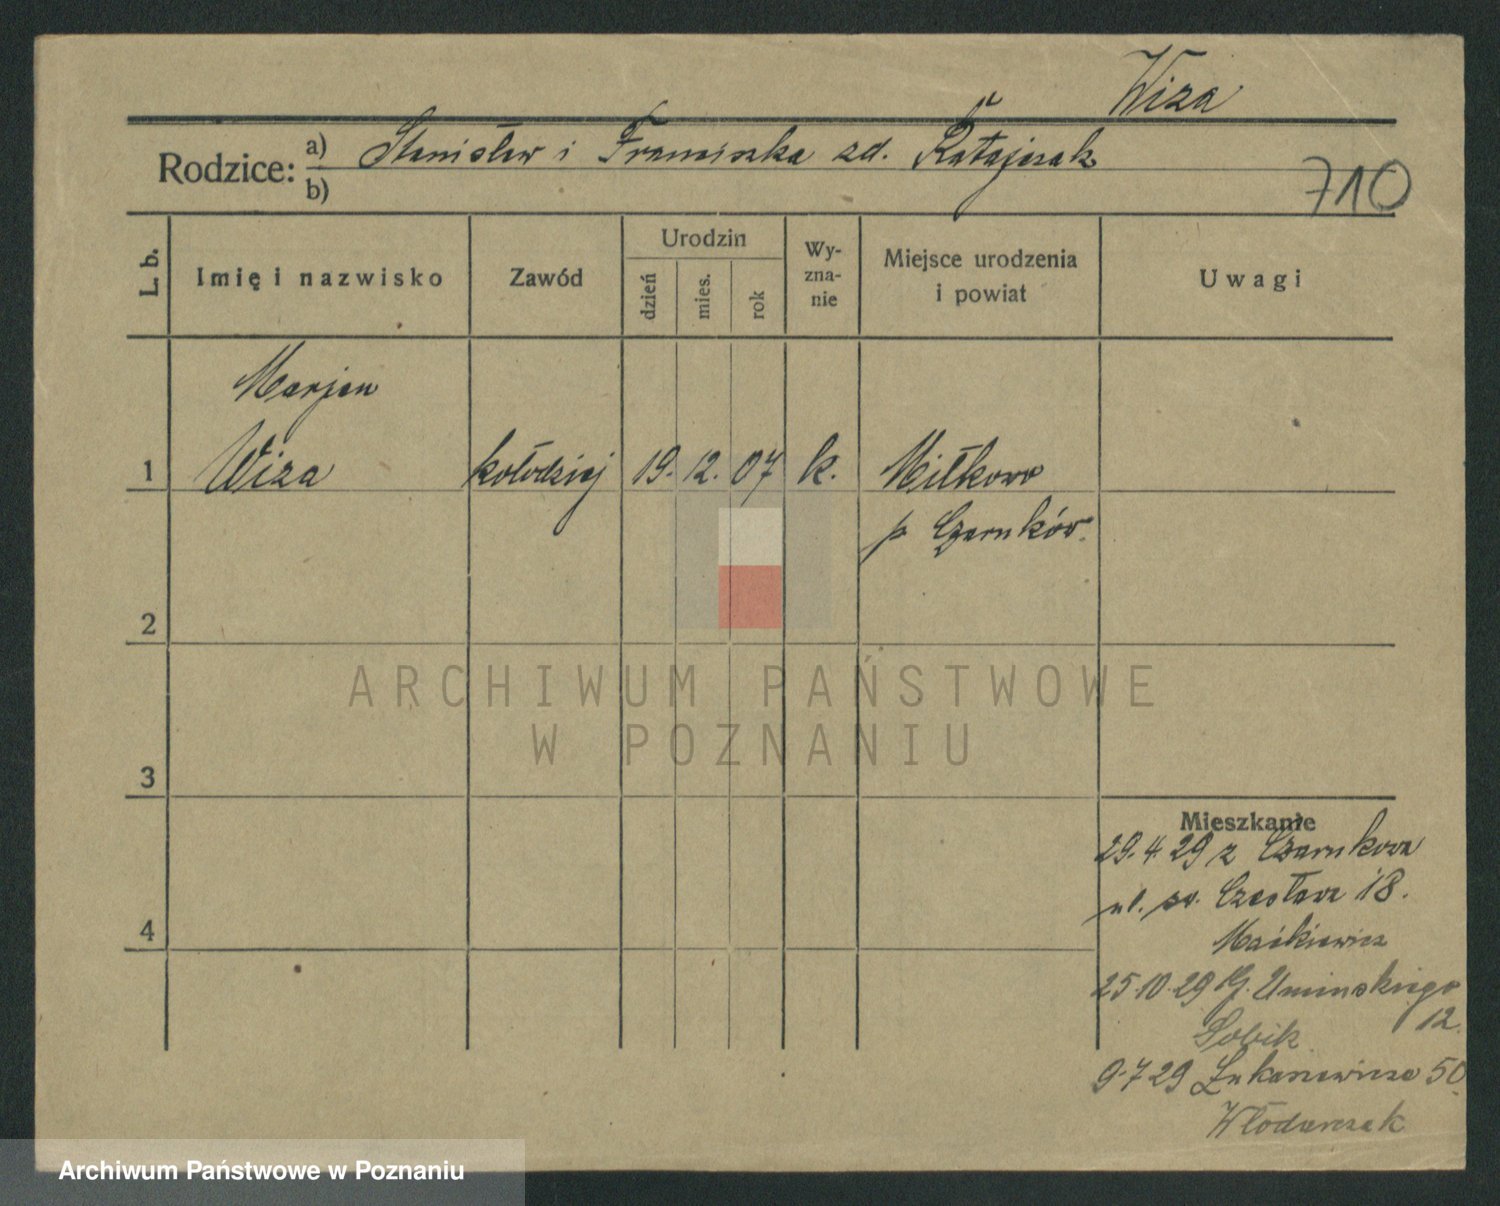 Wiza
Rodzice: a) Stanisław i Franciszka zd. Ratajczak
b)
710
L. b.
Imię i nazwisko
Zawód
Urodzin
dzień
mies.
rok
Wy-
zna-
nie
Miejsce urodzenia
i powiat
Uwagi
Marjan
1 Wiza kołodziej 19. 12. 07 k. Miłkowo
p. Czarnków.
2
3
4
Mieszkanie
29.4.29 z Czarnkowa
ul. św. Czesława 18.
Maćkiewicz
25.10.29 G. Umińskiego
12.
Sobik
9.7.29 Łukaszewicza 50
Włodarczak
ARCHIWUM PAŃSTWOWE
W POZNANIU
Archiwum Państwowe w Poznaniu